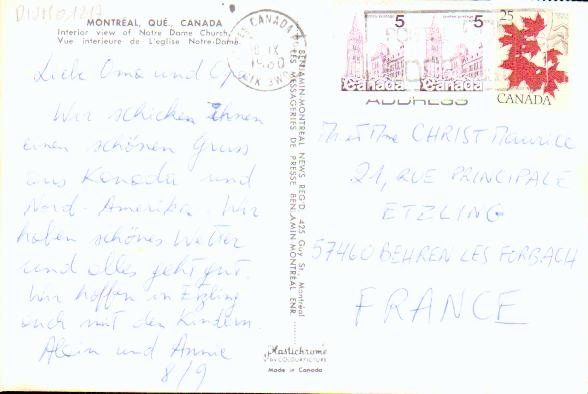 MONTRÉAL, QUÉ., CANADA
Interior view of Notre Dame Church,
Vue interieure de L'eglise Notre-Dame
Liebe Oma und Opa
Wir schicken Ihnen
einen schönen Gruss
aus Kanada und
Nord-Amerika. Wir
haben schönes Wetter
und alles geht gut.
Wir hoffen in Etzling
auch mit den Kindern.
Alain und Annie
8/9
BENJAMIN-MONTREAL NEWS REG'D 425 Guy St. Montréal
LES MESSAGERIES DE PRESSE BENJAMIN MONTREAL ENR.
Plastichrome
BY COLOURPICTURE
Made in Canada
CANADA
IX
1980
5
5
25
Canada
Canada
CANADA
ADDRESS
M et Mme CHRIST Maurice
21, RUE PRINCIPALE
ETZLING
57460 BEHREN LES FORBACH
FRANCE